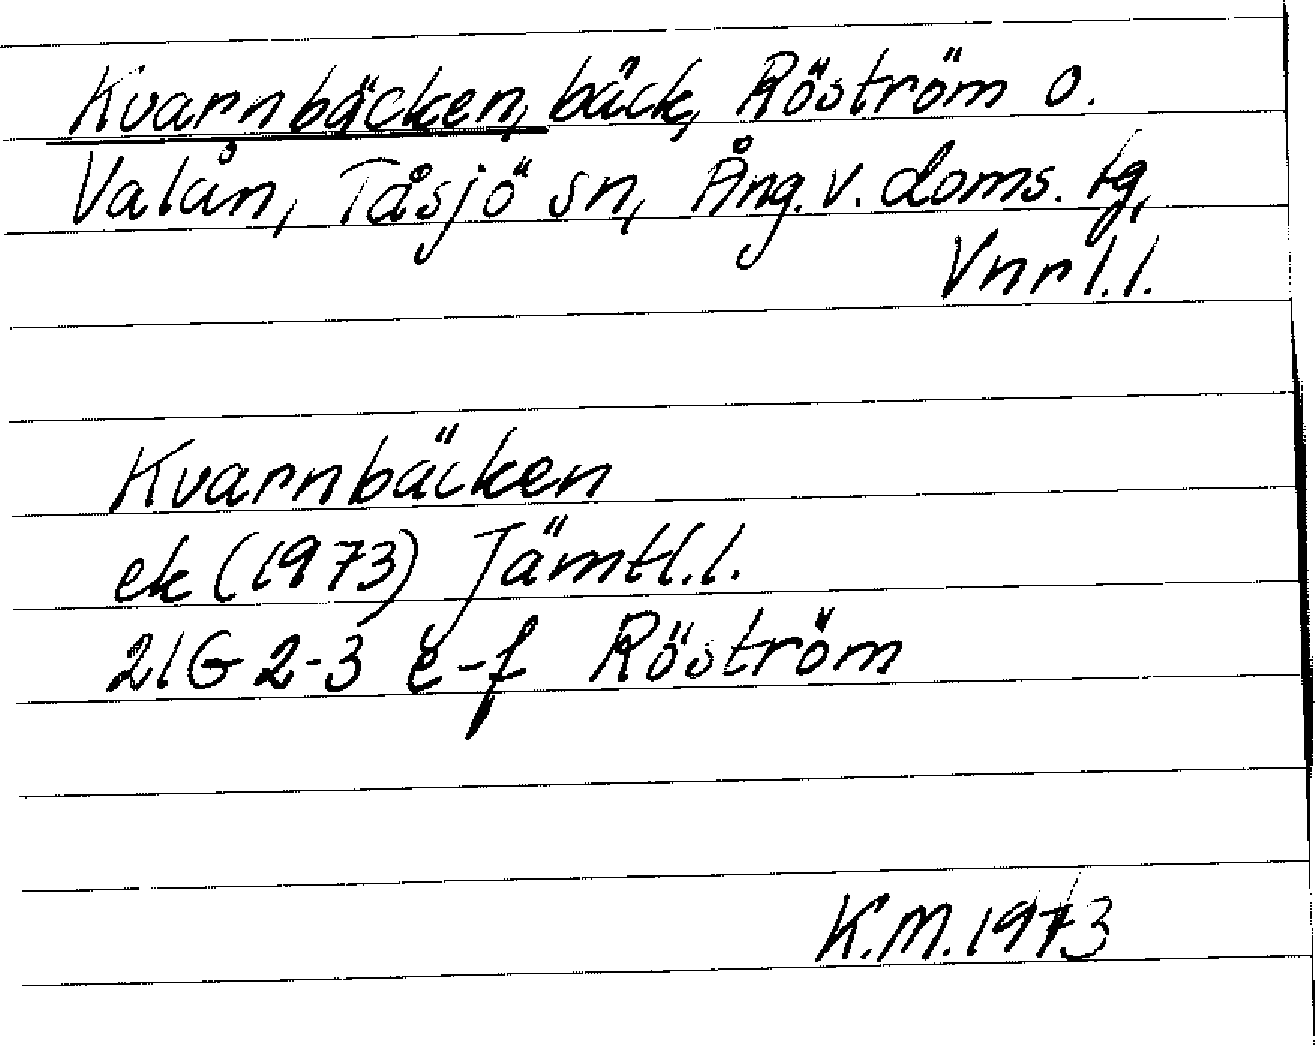 Kvarnbäcken, bäck, Röström o.
Valån, Tåsjö sn, Ång. v. doms. tg,
Vnrl.l.
Kvarnbäcken
ek (1973) Jämtl.l.
21G 2-3 e-f Röström
K.M. 1973